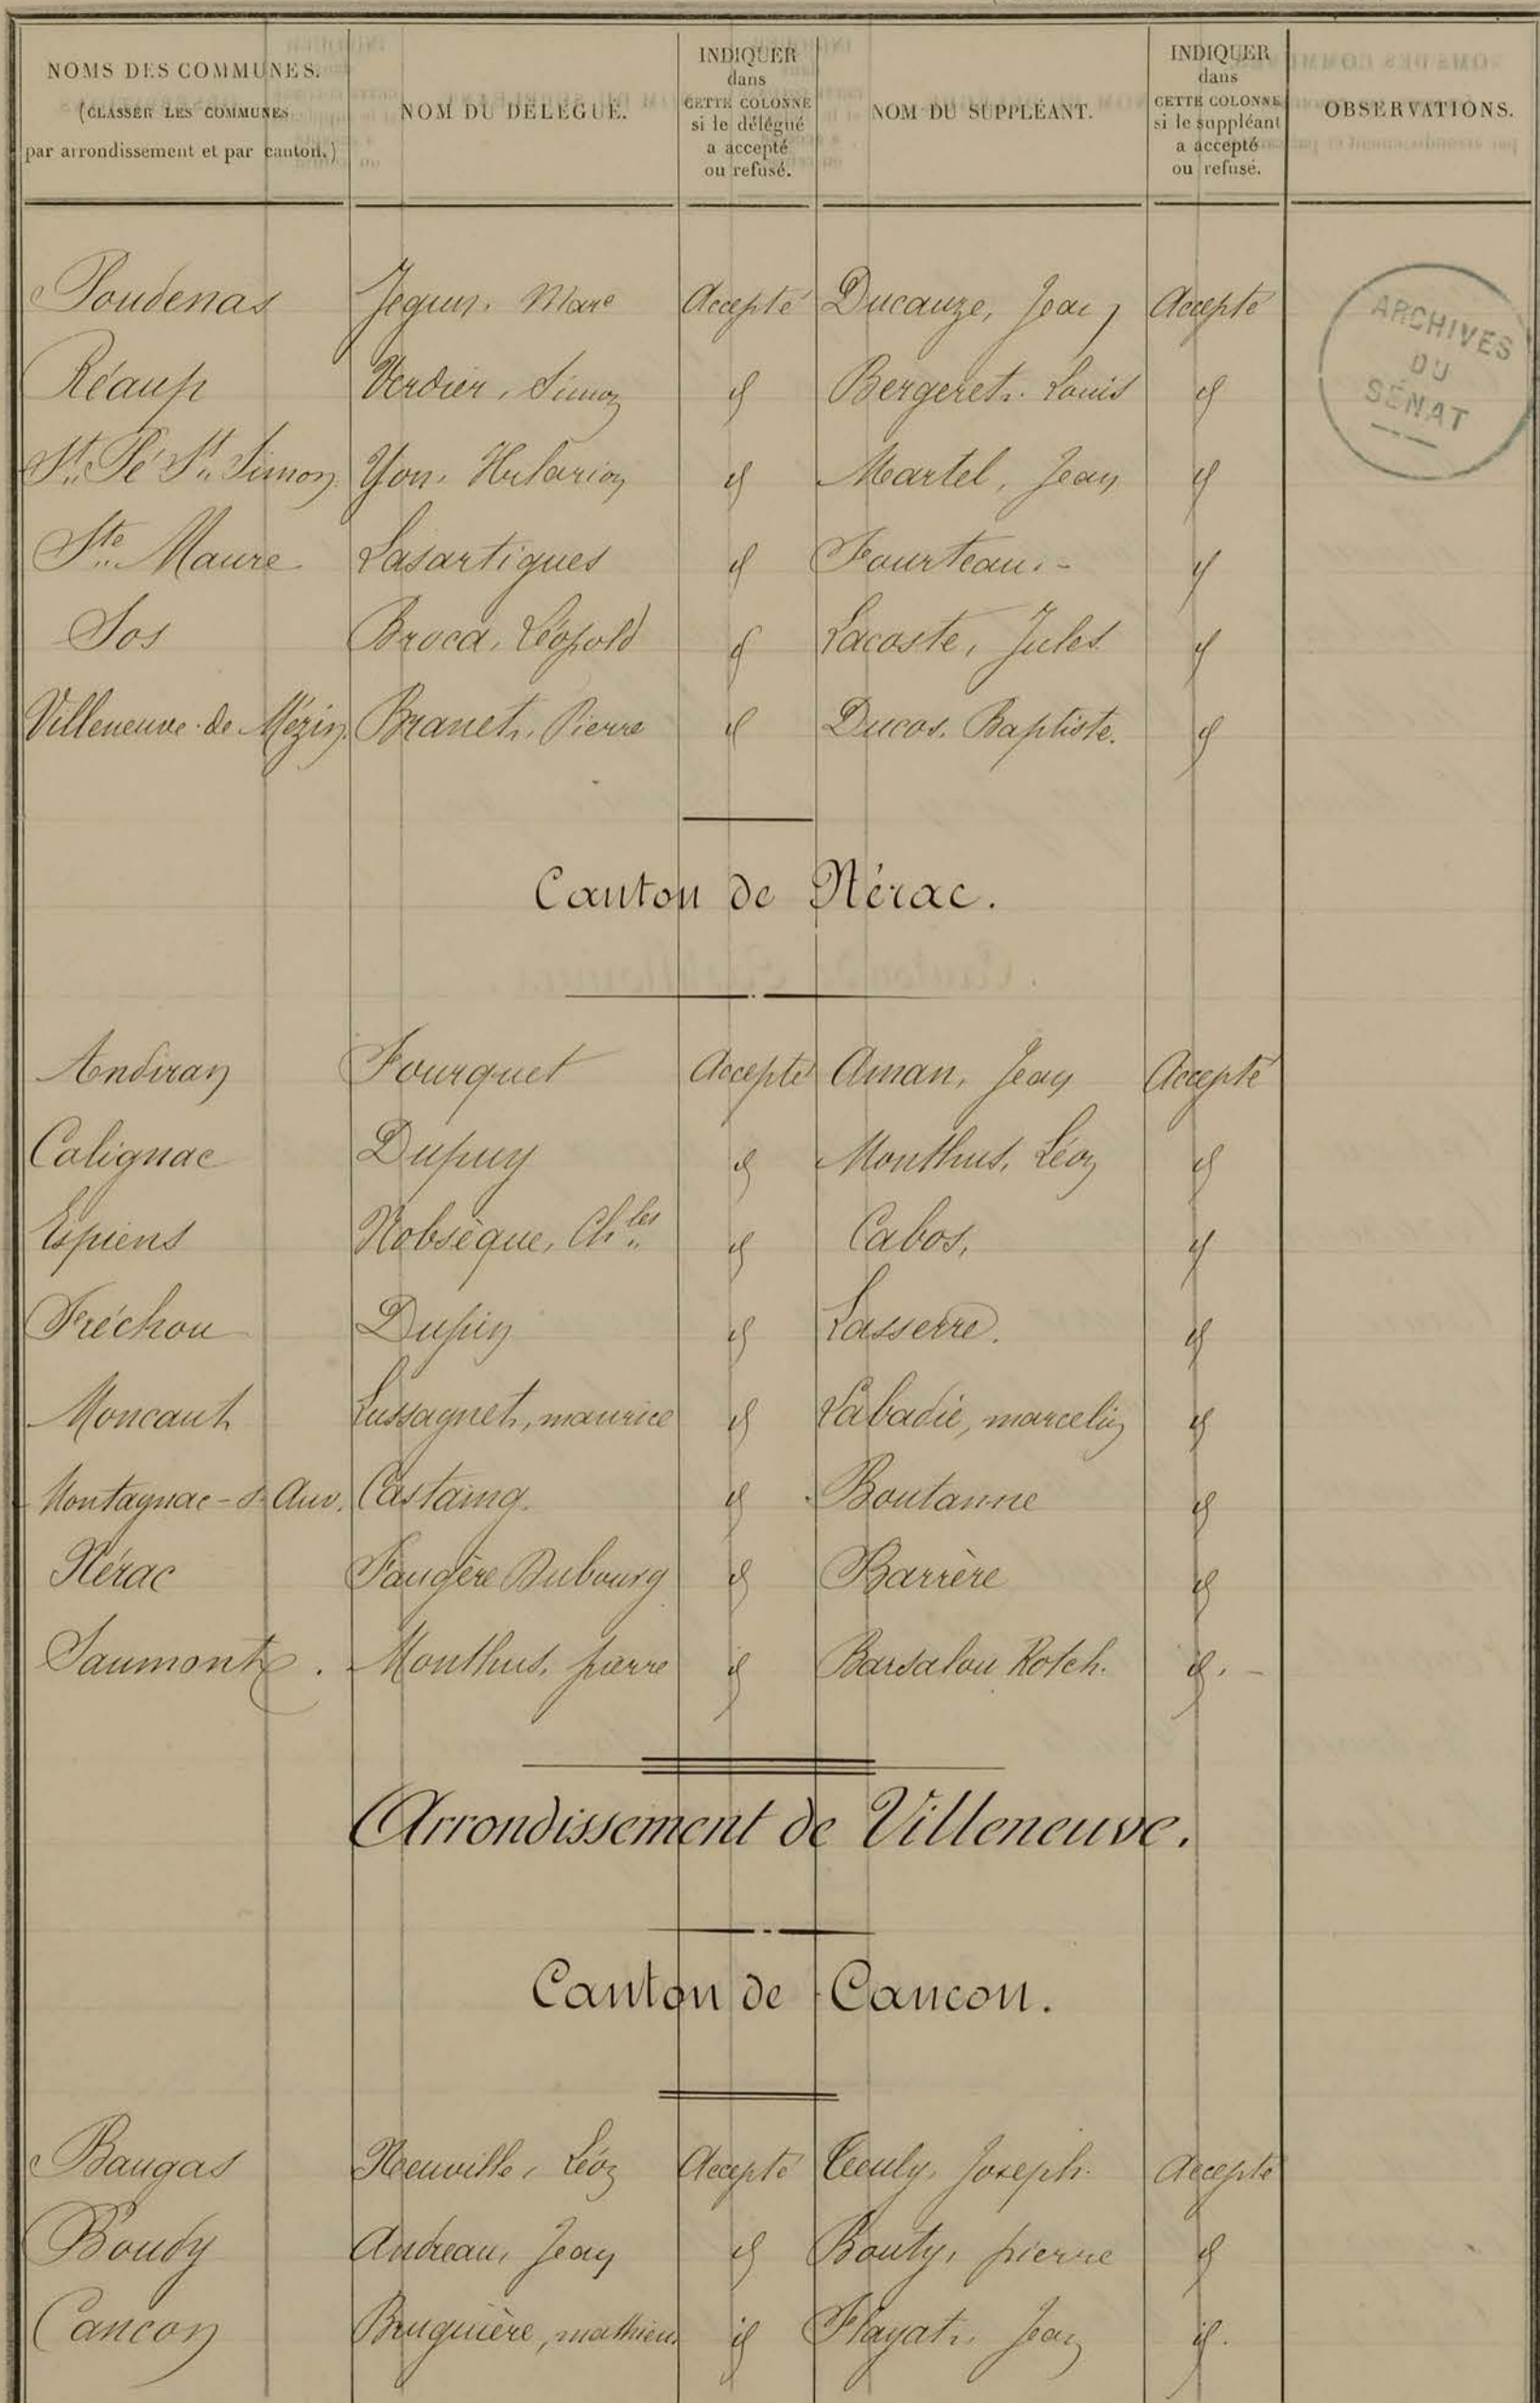 NOMS DES COMMUNES. (CLASSER LES COMMUNES par arrondissement et par canton.) NOM DU DÉLÉGUÉ. INDIQUER dans CETTE COLONNE si le délégué a accepté ou refusé. NOM DU SUPPLÉANT. INDIQUER dans CETTE COLONNE si le suppléant a accepté ou refusé. OBSERVATIONS.
ARCHIVES DU SÉNAT
Poudenas Jegun, Marc Accepté Ducauze, Jean Accepté
Réaup Verdier, Simon id Bergeret, Louis id
St Pé St Simon Yon, Hilarion id Martel, Jean id
Ste Maure Lasartigues id Fourteau. - id
Sos Broca, Léopold id Lacoste, Jules id
Villeneuve de Mézin Branet, Pierre id Ducos, Baptiste. id
Canton de Nérac.
Andiran Fourquet Accepté Aman, Jean Accepté
Calignac Dupuy id Monthus, Léon id
Espiens Nobsèque, Ch.les id Cabos, id
Fréchou Dupin id Lasserre. id
Moncaut Lussagnet, maurice id Labadie, marcelin id
Montagnac-s-Auv. Castaing. id Boutanne id
Nérac Faugère Dubourg id Barrère id
Saumont. Monthus, pierre id Barsalou Rotch. id. -
Arrondissement de Villeneuve.
Canton de Cancon.
Baugas Neuville, Léon Accepté Teuly, Joseph. Accepté
Boudy Andreau, Jean id Bouty, pierre id
Cancon Bruguière, mathieu id Flayat, Jean id.